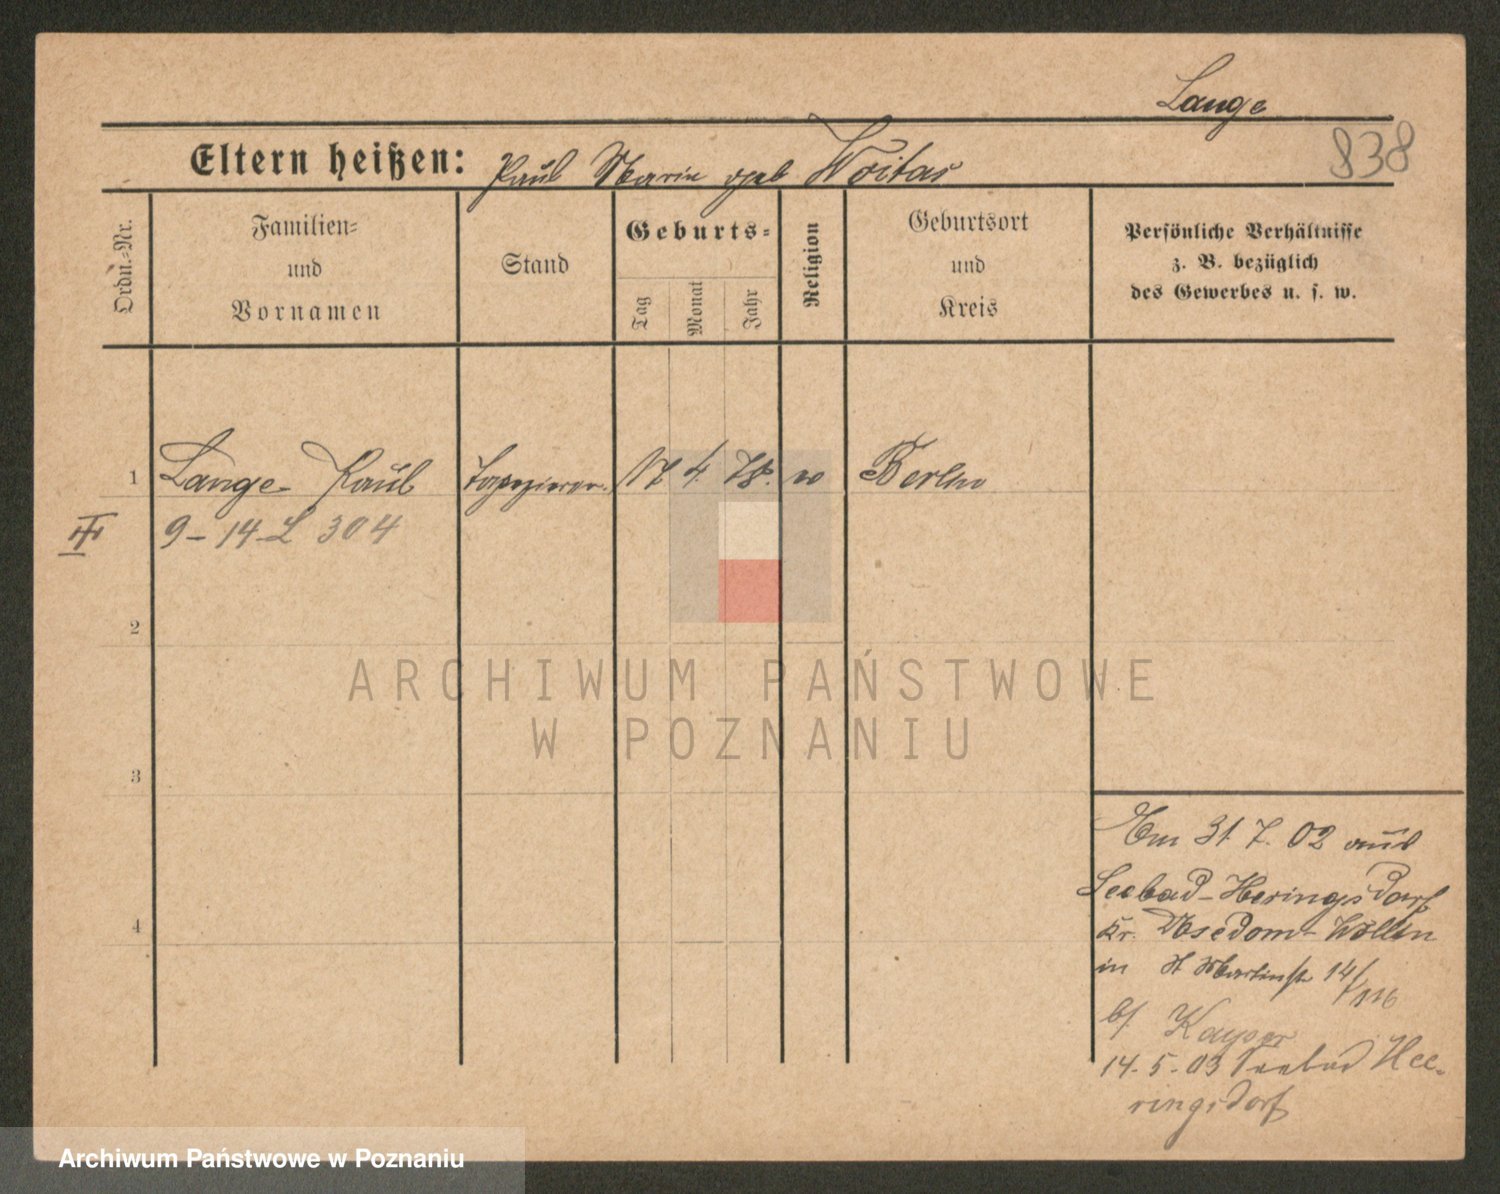 Lange
838
Eltern heißen: Paul Marie geb Woitas
Ordn.-Nr.
Familien-
und
Vornamen
Stand
Geburts-
Tag
Monat
Jahr
Religion
Geburtsort
und
Kreis
Persönliche Verhältnisse
z. B. bezüglich
des Gewerbes u. s. w.
1 Lange Paul Tapezierer 17 4. 78. Berlin
III 9-14-L 304
2
ARCHIWUM PAŃSTWOWE
W POZNANIU
3
4
Am 31. 7. 02 aus
Seebad-Heringsdorf
Kr. Usedom-Wollin
in St Martinstr 14/
b/ Kayser
14. 5. 03 Seebad Hee-
ringsdorf
Archiwum Państwowe w Poznaniu